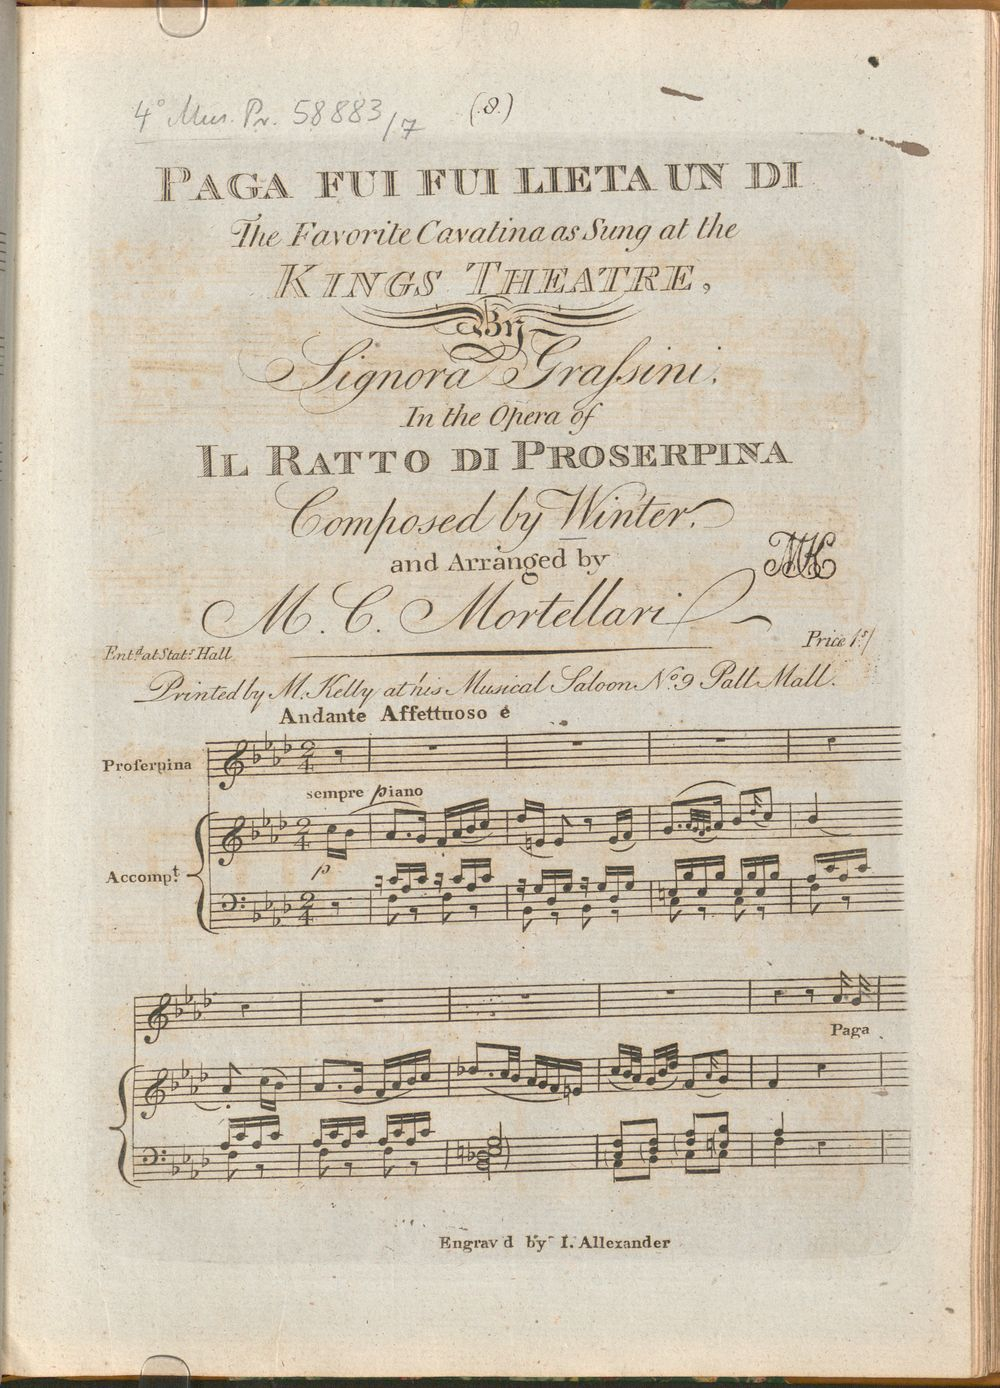 4° Mus. Pr. 58883/7
(8.)
PAGA FUI FUI LIETA UN DI
The Favorite Cavatina as Sung at the
KINGS THEATRE,
By
Signora Graſsini,
In the Opera of
IL RATTO DI PROSERPINA
Composed by Winter.
and Arranged by
MK
M. C. Mortellari
Ent.d at Stat.s Hall
Price 1.s/
Printed by M. Kelly at his Musical Saloon No. 9 Pall Mall.
Andante Affettuoso é
Proſerpina
sempre piano
p
Accomp.t
Paga
Engrav'd by I. Allexander